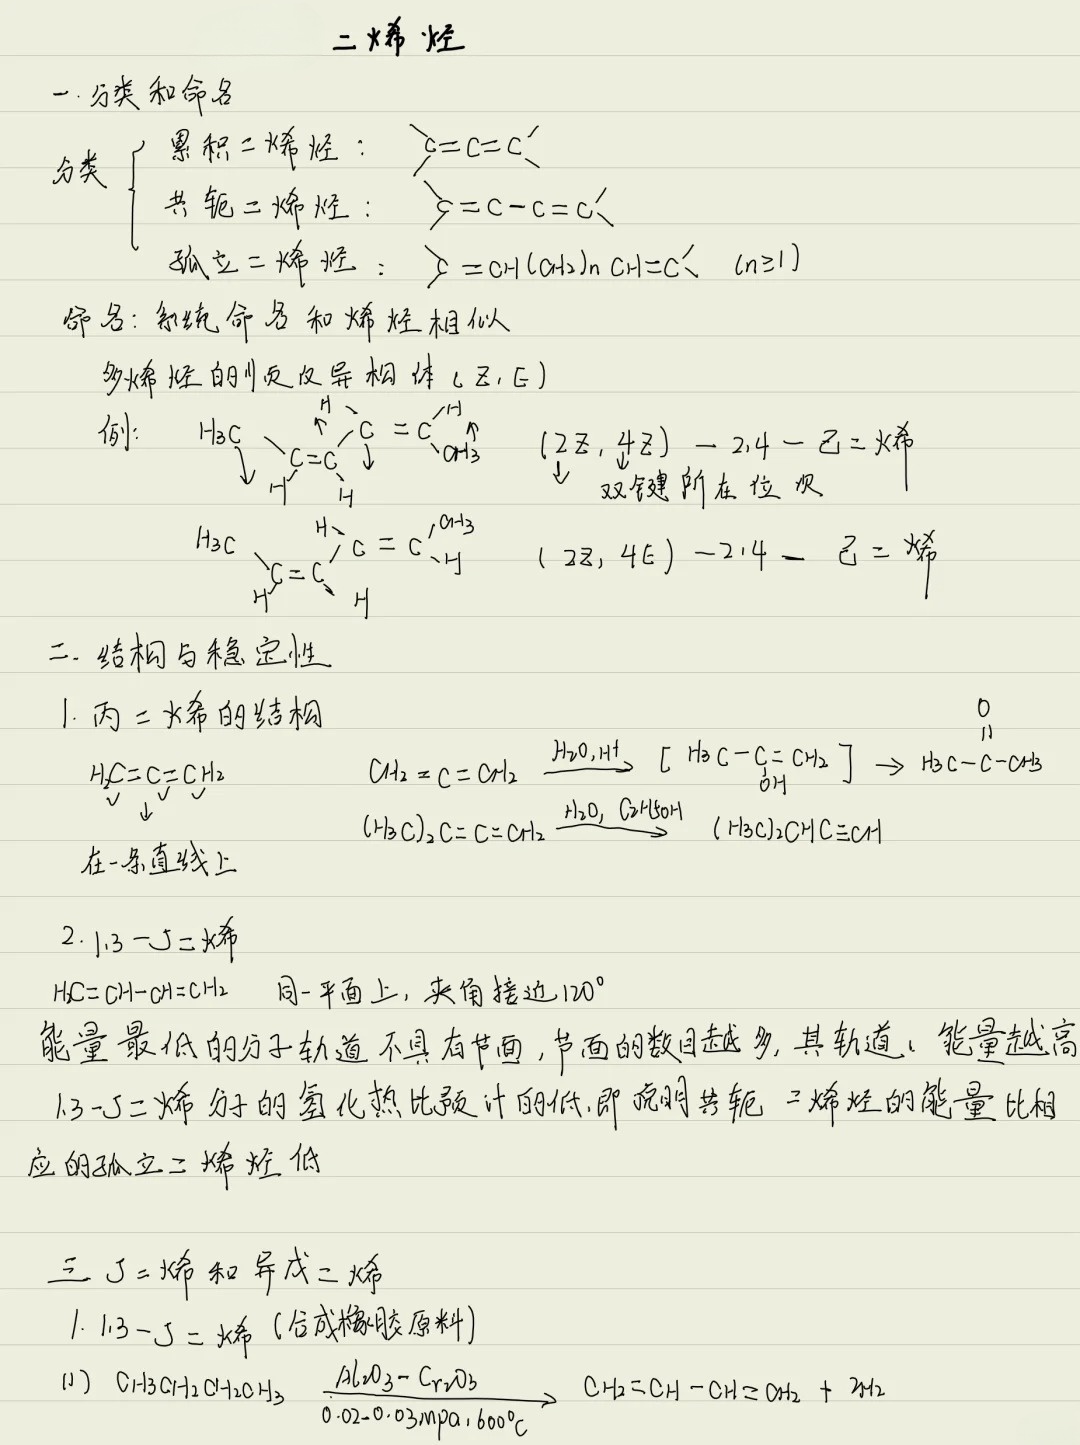 二烯烃
一.分类和命名
分类
累积二烯烃： C=C=C
共轭二烯烃： C=C-C=C
孤立二烯烃： C=CH(CH2)nCH=C (n≥1)
命名：系统命名和烯烃相似
多烯烃的顺反异构体(Z,E)
例：
H3C H C=C H C=C H CH3 H H (2Z,4Z)-2,4-己二烯
双键所在位次
H3C H C=C H C=C CH3 H H H (2Z,4E)-2,4-己二烯
二.结构与稳定性
1.丙二烯的结构
H2C=C=CH2 CH2=C=CH2 H2O,H+ → [H3C-C=CH2 OH] → H3C-C-CH3 O
(H3C)2C=C=CH2 H2O, C2H5OH → (H3C)2CHC≡CH
在一条直线上
2.1,3-丁二烯
H2C=CH-CH=CH2 同一平面上，夹角接近120°
能量最低的分子轨道不具有节面，节面的数目越多，其轨道、能量越高
1,3-丁二烯分子的氢化热比预计的低，即说明共轭二烯烃的能量比相
应的孤立二烯烃低
三 丁二烯和异戊二烯
1. 1,3-丁二烯(合成橡胶原料)
(1) CH3CH2CH2CH3 Al2O3-Cr2O3 0.02-0.03mpa,600℃ → CH2=CH-CH=CH2 + 2H2